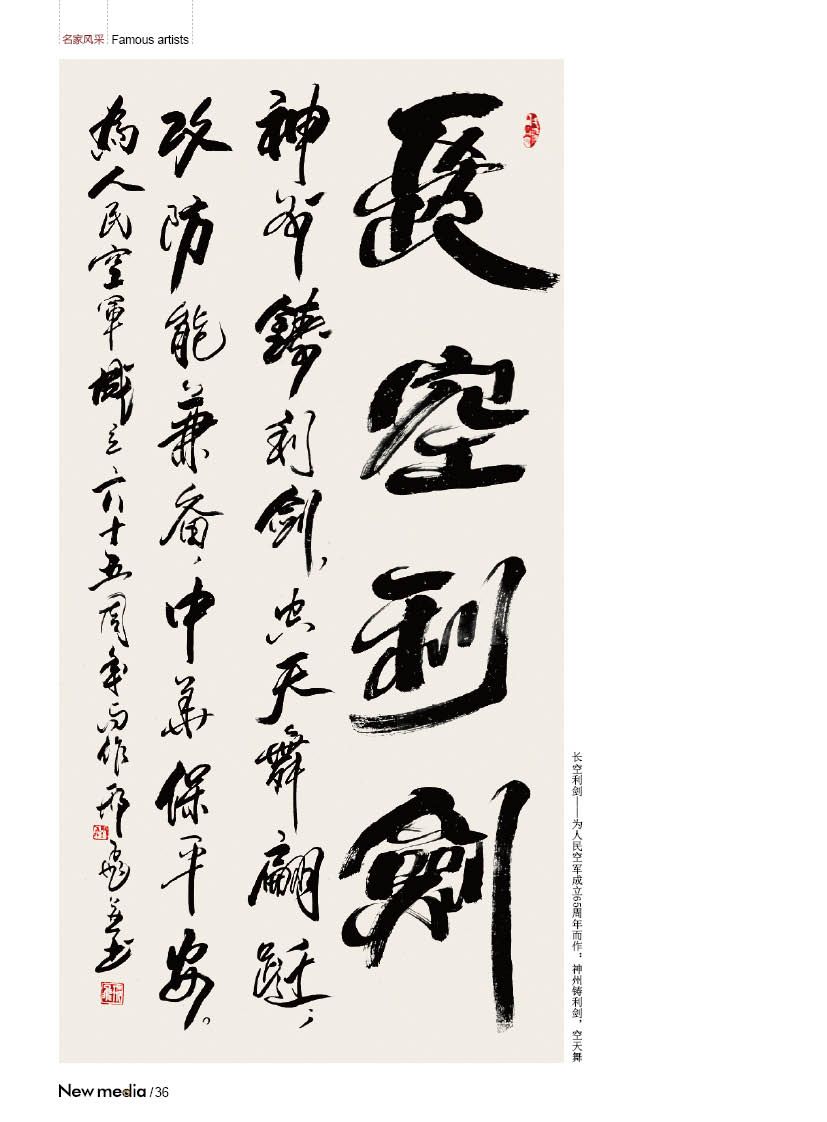 名家风采 Famous artists
長空利劍
神州鑄利劍，空天舞翩跹，
攻防能兼备，中華保平安。
為人民空軍成立六十五周年而作 邢
长空利剑——为人民空军成立65周年而作：神州铸利剑，空天舞
New media /36